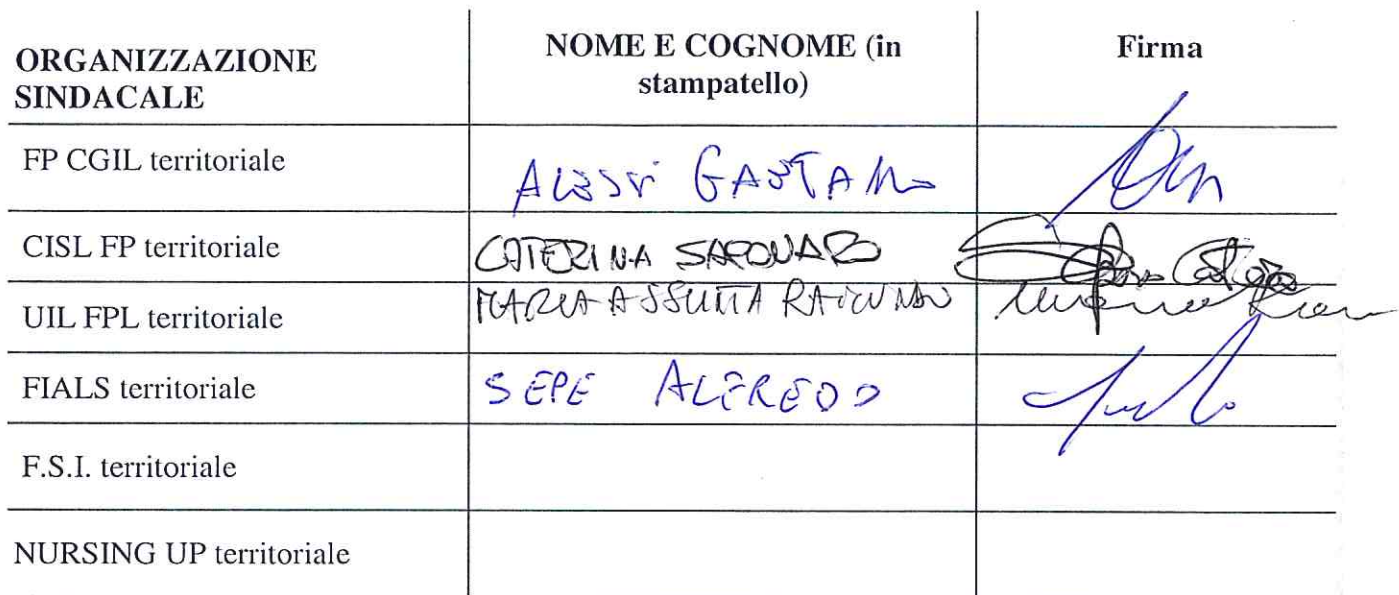 ORGANIZZAZIONE SINDACALE NOME E COGNOME (in stampatello) Firma
FP CGIL territoriale ALESSI GAETANO
CISL FP territoriale CATERINA
UIL FPL territoriale MARIA ASSUNTA
FIALS territoriale SEPE ALFREDO
F.S.I. territoriale
NURSING UP territoriale